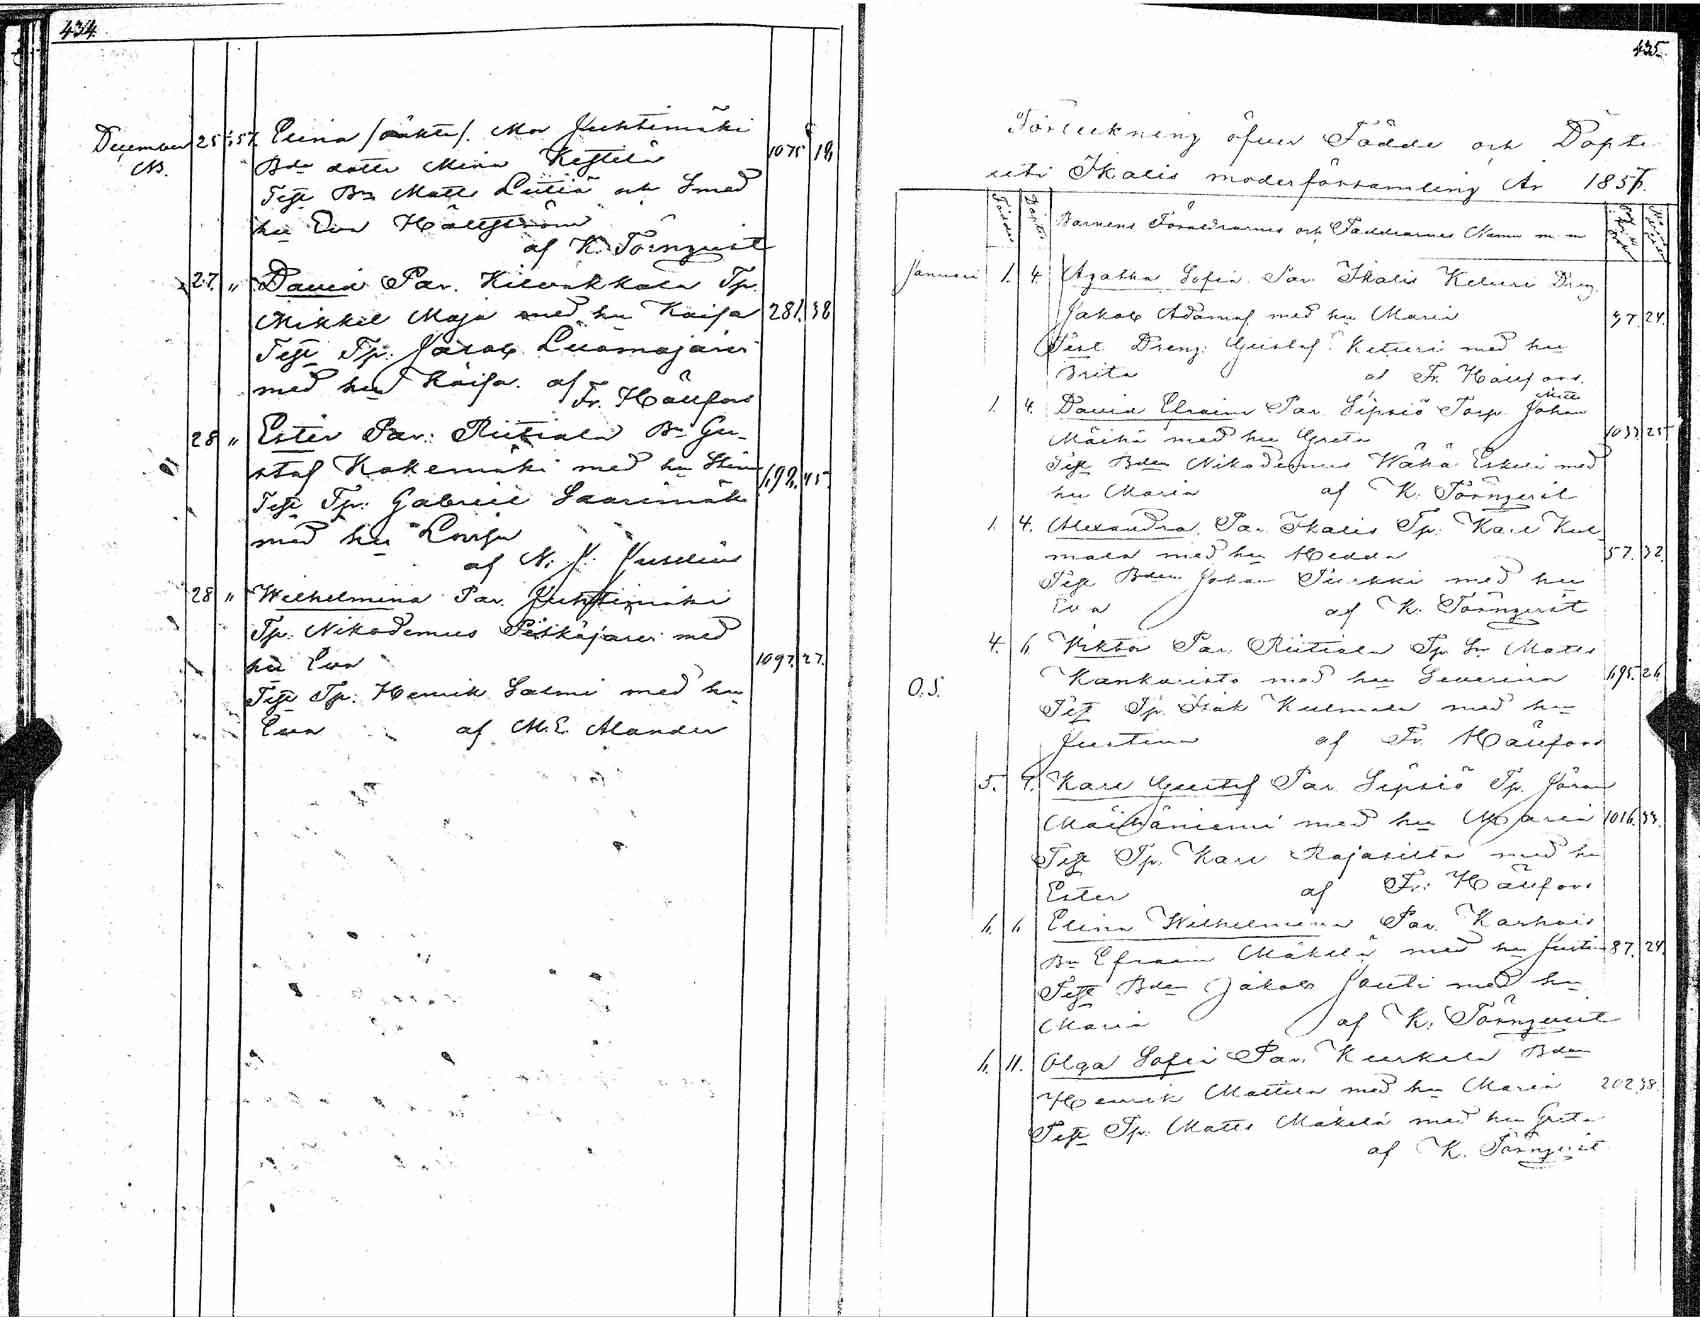 434
December 25 1/57. Elina (oäkta). Mor Juhtimäki
NB. Bde dotter Mina Kestilä 1075 19
Test Bn Matts Lutiä och Smed
hu Eva Hällström
af K. Törnqvist
27. " David Par. Kilvakkala Tp.
Mikkel Maja med hu Kaisa 281. 38
Test Tp. Jakob Luomajärvi
med hu Kaisa. af Fr. Hällfors
28 " Ester Par: Riitiala Bn Gu-
staf Kokemäki med hu Stina 692. 45
Test Tp: Gabriel Saarimäki
med hu Lovisa
af N. J. Jusdius
28 " Wilhelmina Par. Juhtimäki
Tp: Nikodemus Pitkäjärvi med
hu Eva 1097. 27.
Test Tp: Henrik Salmi med hu
Eva af M. E. Alander
435
Förteckning öfver Födde och Döpte
uti Ikalis moderförsamling År 1857.
Födde Döpte Barnens Föräldrarnes och Faddrarnes Namn m m
Januari 1. 4. Agatha Sofia Par Ikalis Keturi Dreng.
Jakob Adamsf. med hu Maria 37. 24.
Test Dreng: Gustaf Keturi med hu
Brita af Fr. Hällfors.
1. 4. David Efraim Par Sipsiö Torp. Johan Matts
Mäihä med hu Greta 1037 25
Test Bden Nikodemus Wähä Eskeli med
hu Maria af K. Törnqvist
1. 4. Alexandra. Par Ikalis Tp. Karl Kul-
mala med hu Hedda 57. 32.
Test Bden Johan Purkki med hu
Eva af K. Törnqvist
4. 6 Viktor Par. Riitiala Tp. Sn Matts
O.S. Kankaristo med hu Severina 695. 26
Test Tp. Isak Kulmala med hu
Justina af Fr. Hällfors
5. 7. Karl Gustaf Par Sipsiö Tp. Jöran
Mäihäniemi med hu Maria 1016. 33.
Test Tp. Karl Rajasilta med hu
Ester af Fr: Hällfors
6. 6 Elina Wilhelmina Par. Karhois
Bn Efraim Mäkelä med hu Justina 87. 24.
Test Bden Jakob Jouti med hu
Maria af K. Törnqvist
6. 11. Olga Sofia Par. Kurkela Bden
Henrik Mattila med hu Maria 202. 38.
Test Tp. Matts Mäkelä med hu Greta
af K. Törnqvist